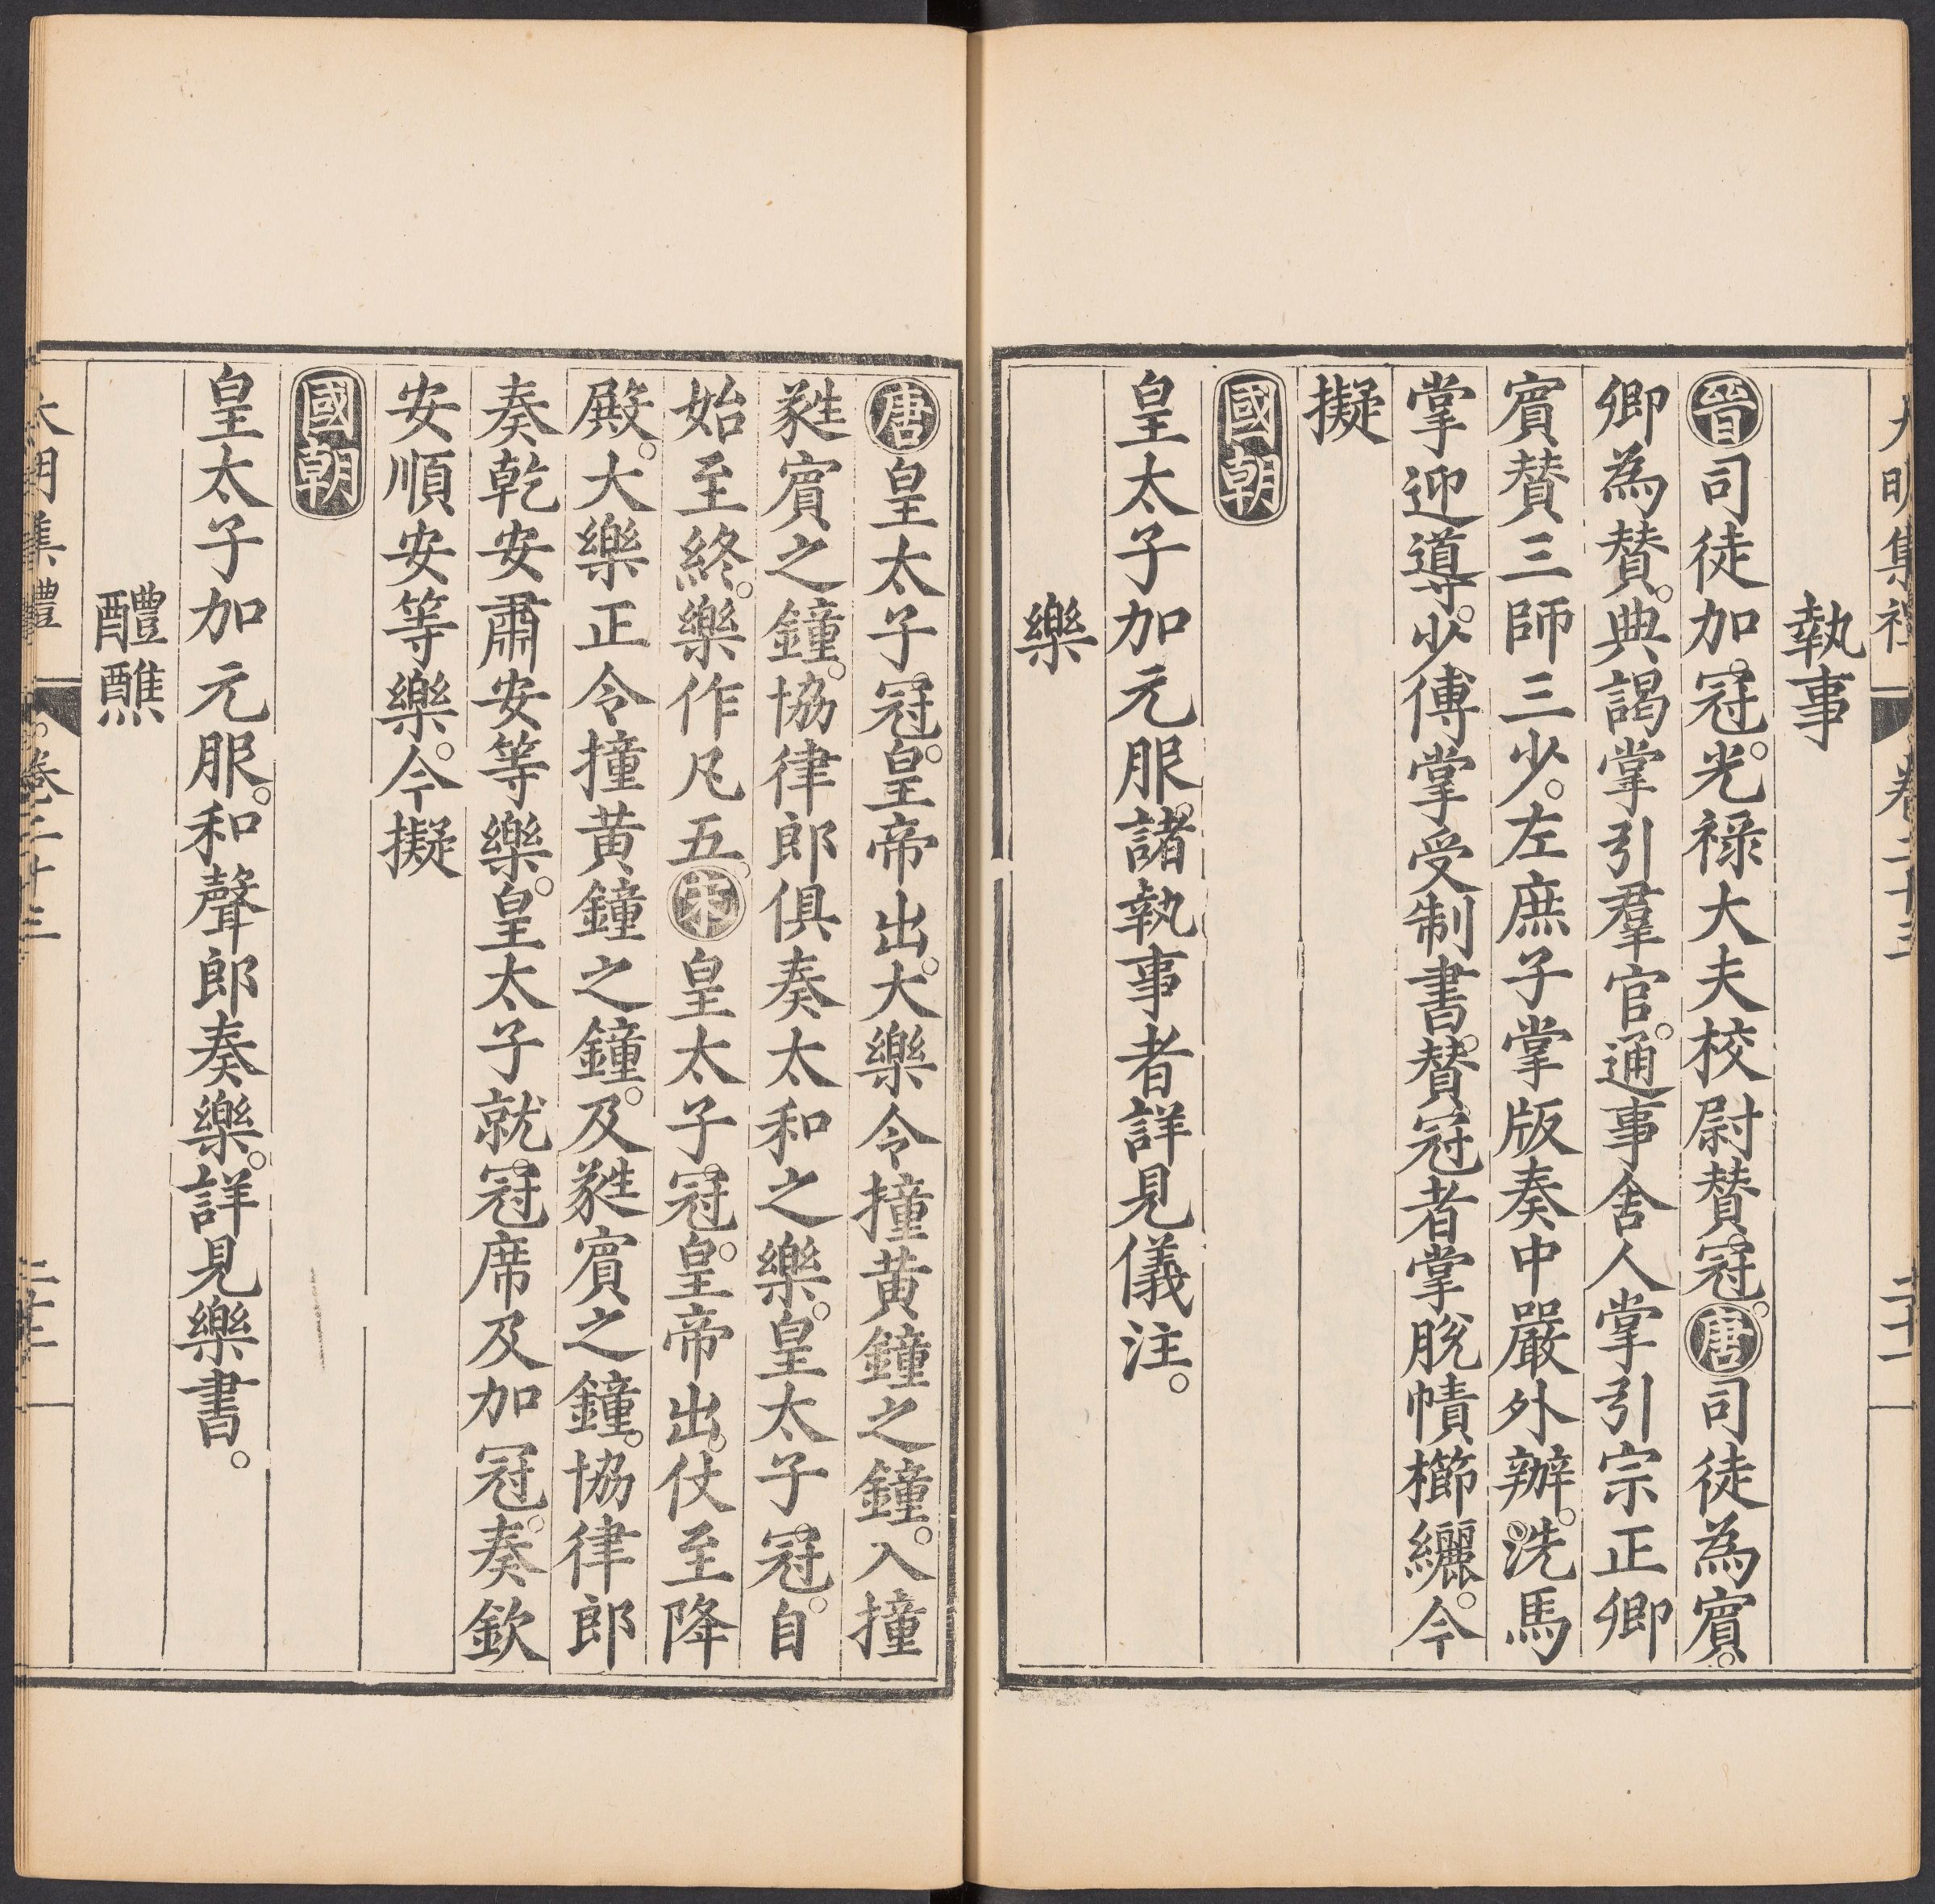 大明集禮 卷二十三 二十一
執事
晉司徒加冠。光祿大夫校尉贊冠。唐司徒為賓。
卿為贊。典謁掌引羣官。通事舍人掌引宗正卿
賓贊三師三少。左庶子掌版奏中嚴外辦。洗馬
掌迎導。少傅掌受制書。贊冠者掌脫幘櫛纚。今
擬
國朝
皇太子加元服。諸執事者詳見儀注。
樂
唐皇太子冠。皇帝出。大樂令撞黃鐘之鐘。入撞
蕤賓之鐘。協律郎俱奏太和之樂。皇太子冠。自
始至終。樂作凡五。宋皇太子冠。皇帝出。仗至降
殿。大樂正令撞黃鐘之鐘。及蕤賓之鐘。協律郎
奏乾安肅安等樂。皇太子就冠席及加冠。奏欽
安順安等樂。今擬
國朝
皇太子加元服。和聲郎奏樂。詳見樂書。
醴醮
大明集禮 卷二十三 二十二